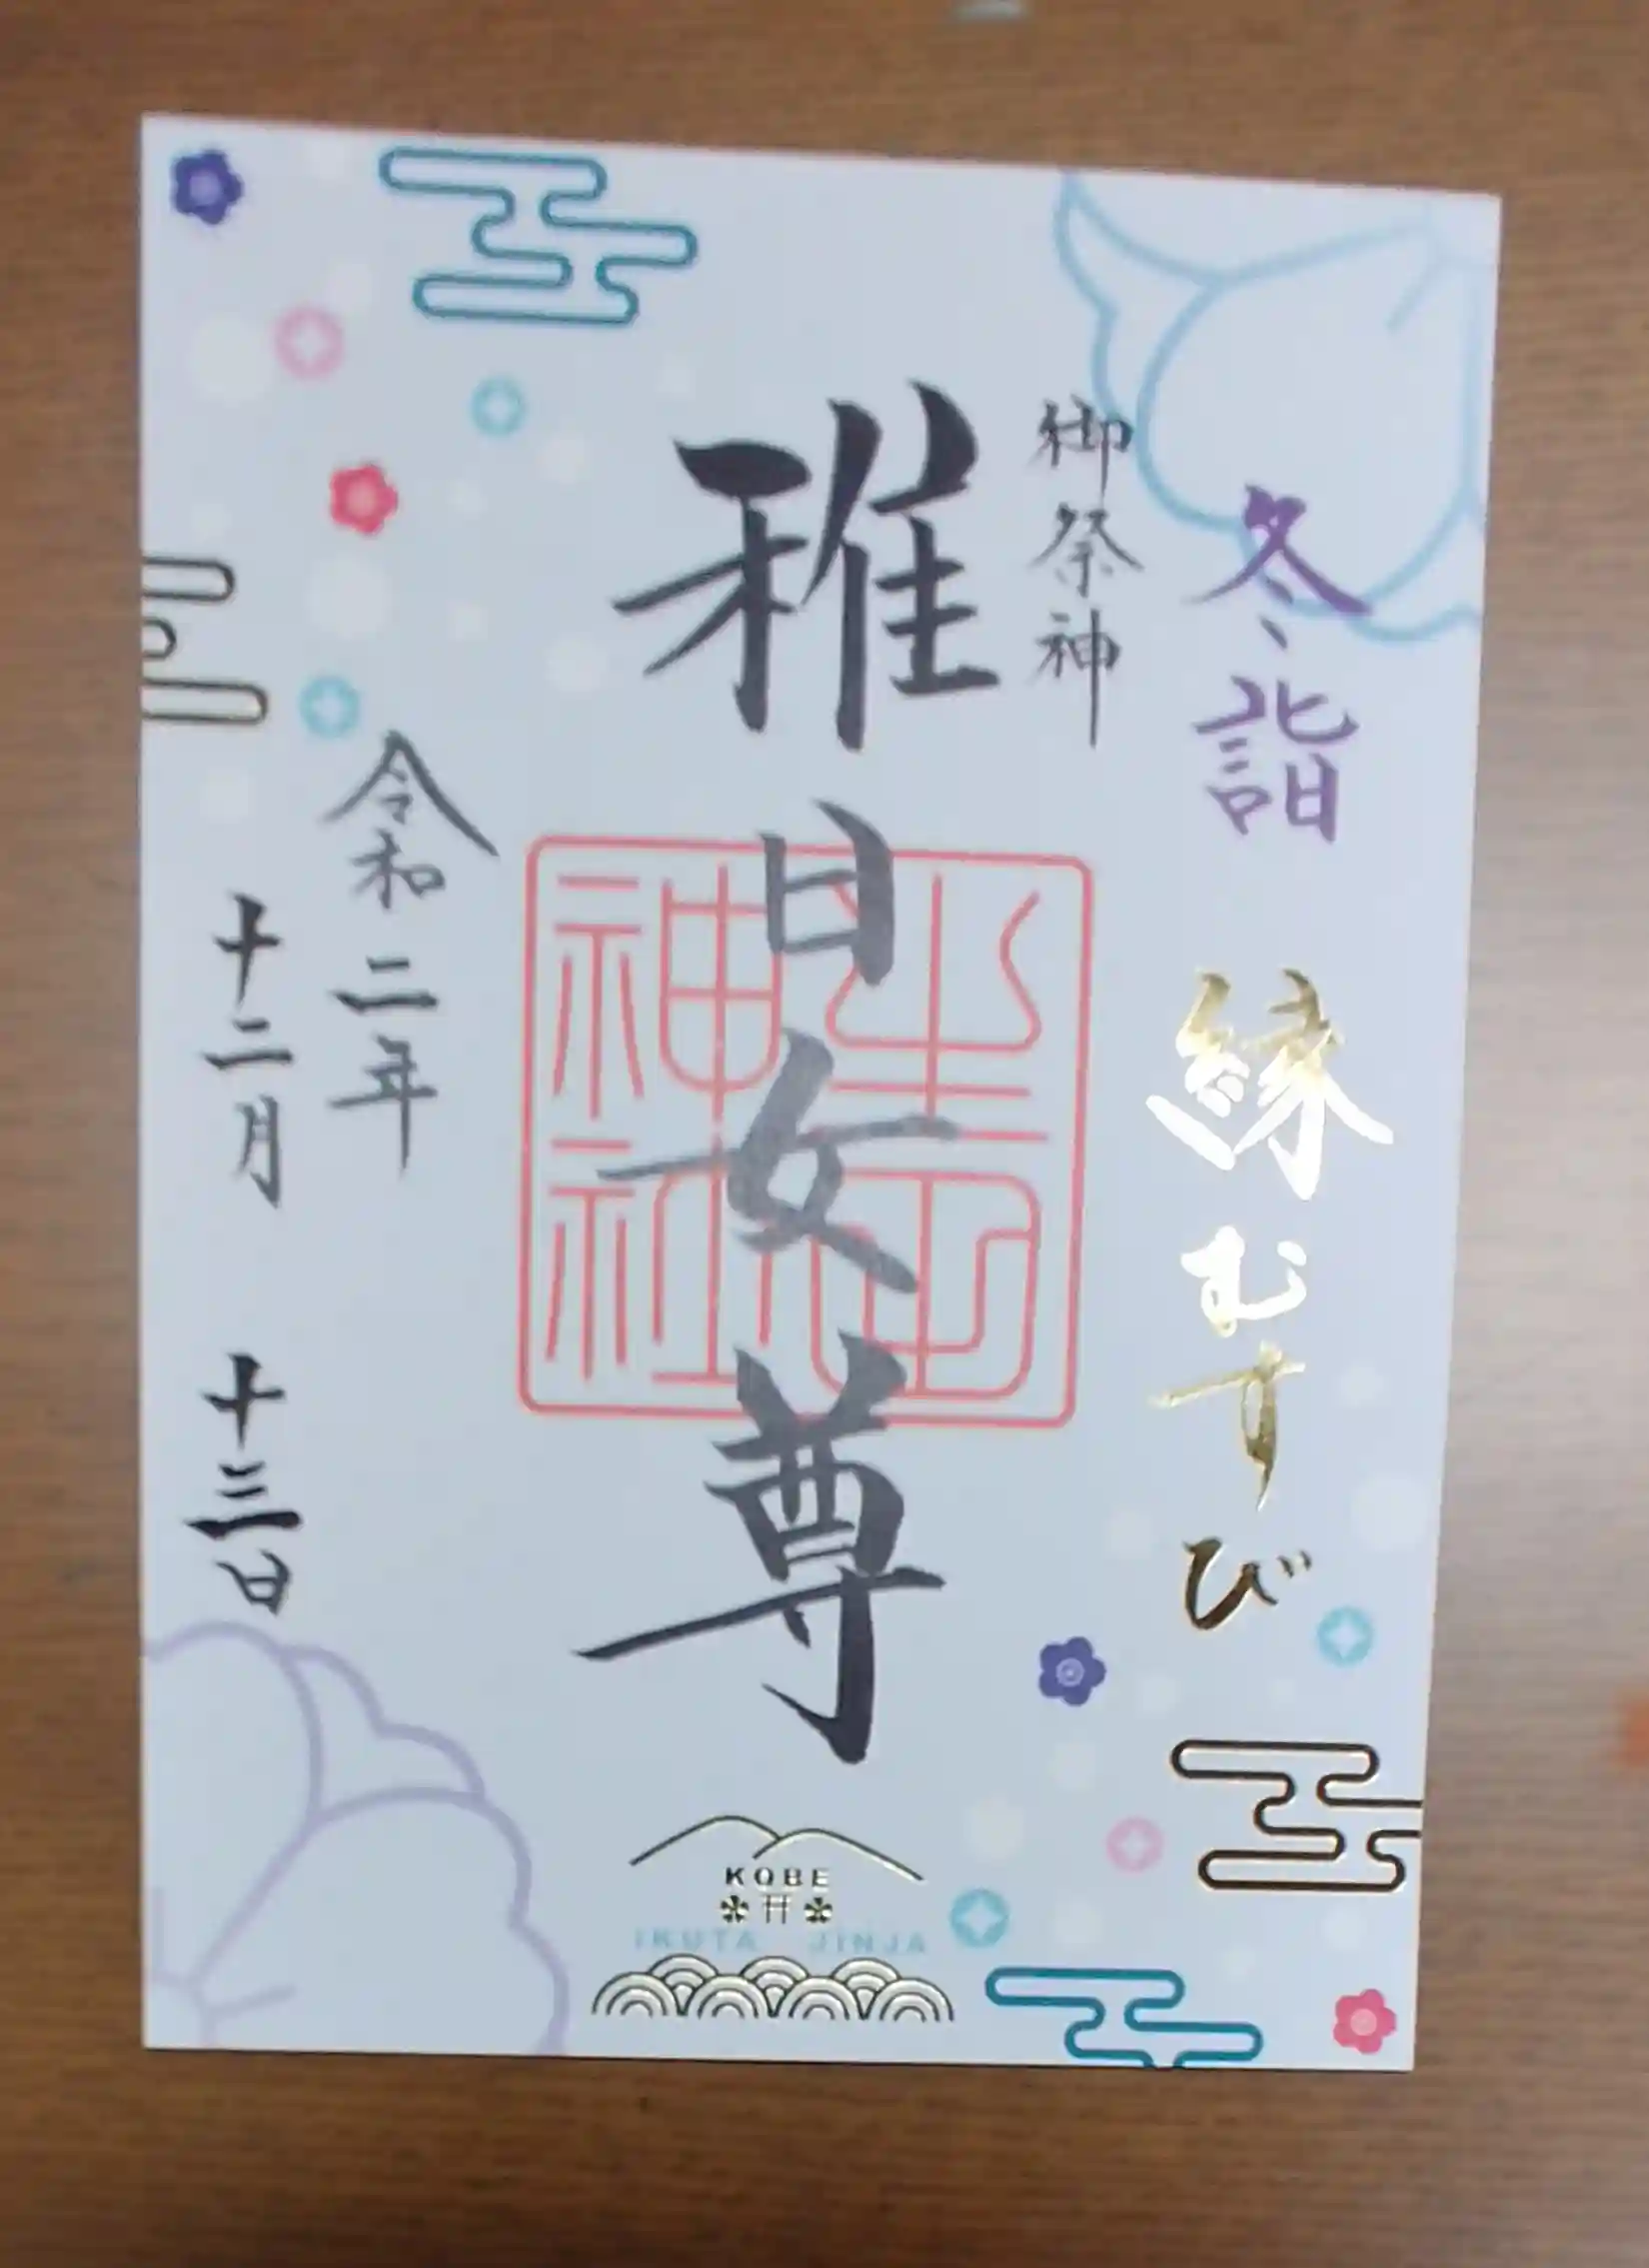 冬詣
縁むすび
御祭神
稚日女尊
生田神社
令和二年
十二月 十三日
KOBE
IKUTA JINJA